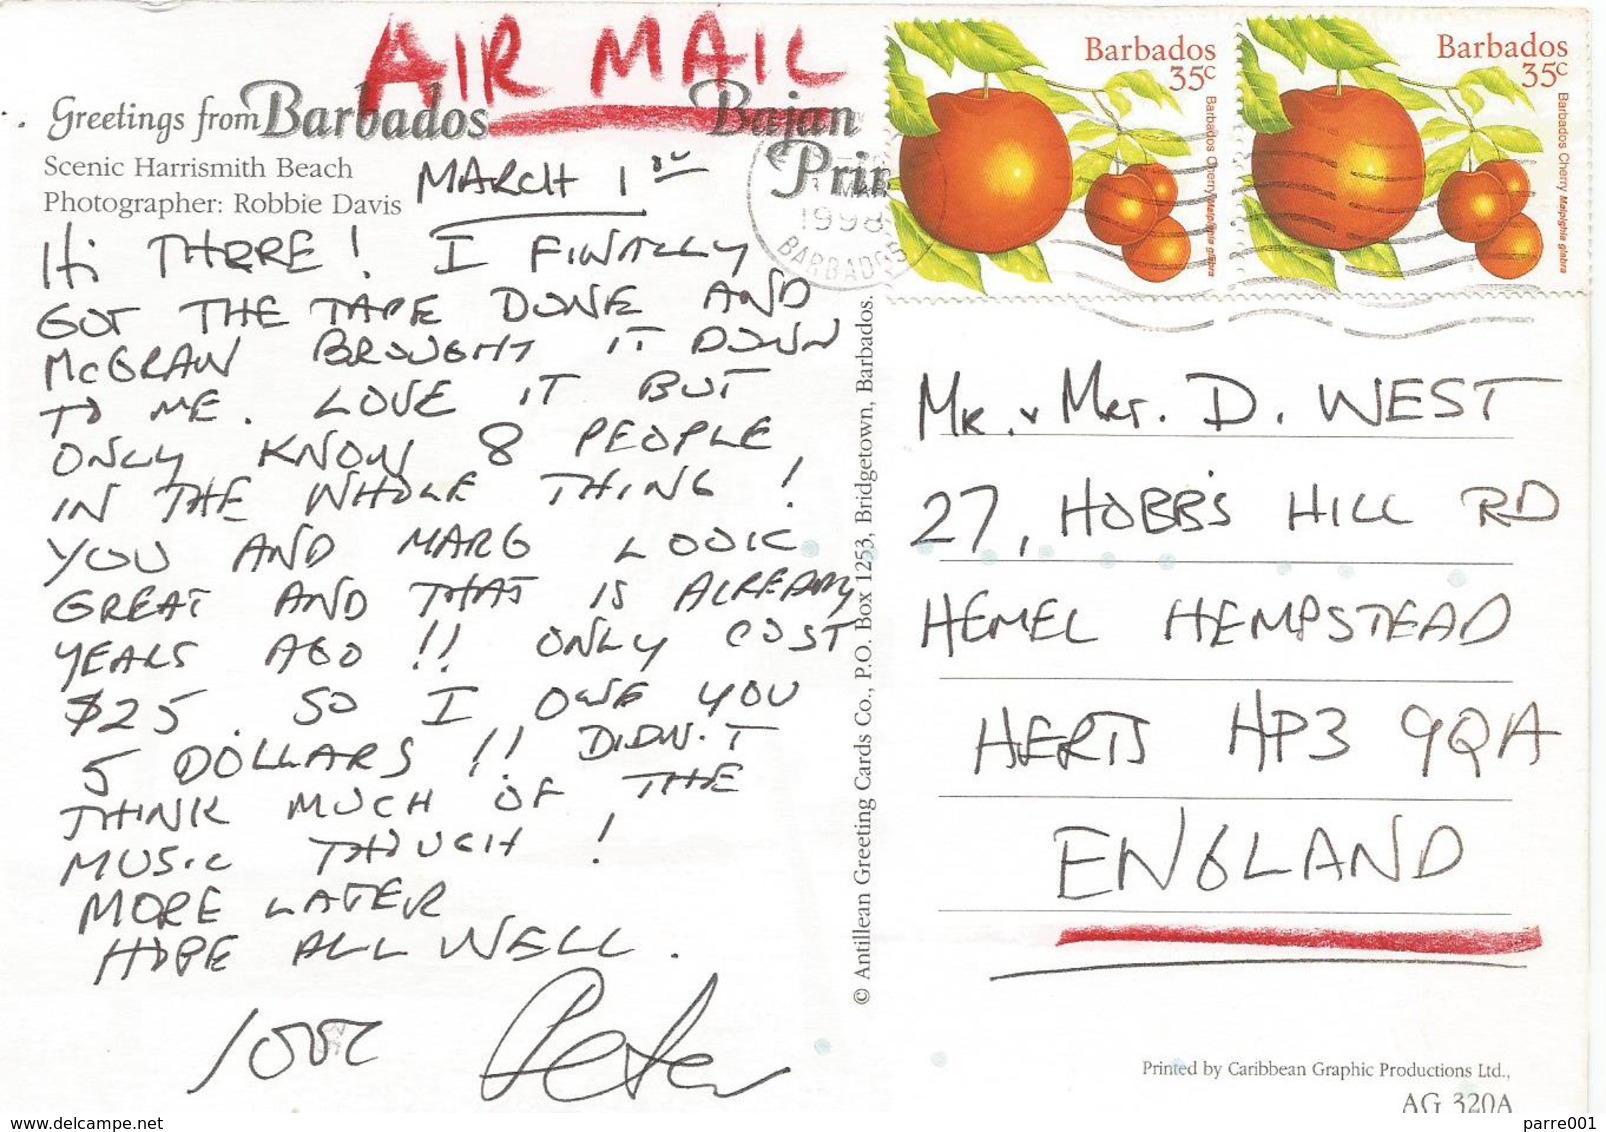 AIR MAIL
Greetings from Barbados
Scenic Harrismith Beach
Photographer: Robbie Davis
MARCH 1
HI THERE! I FINALLY
GOT THE TAPE DONE AND
McGRAW BROUGHT IT DOWN
TO ME. LOVE IT BUT
ONLY KNOW 8 PEOPLE
IN THE WHOLE THING!
YOU AND MARG LOOK
GREAT AND THAT IS ALREADY
YEARS AGO!! ONLY COST
$25 SO I OWE YOU
5 DOLLARS!! DIDN'T
THINK MUCH OF THE
MUSIC THOUGH!
MORE LATER
HOPE ALL WELL.
love Peter
© Antillean Greeting Cards Co., P.O. Box 1253, Bridgetown, Barbados.
Bajan
Prin
1998
BARBADOS
Barbados
35c
Barbados Cherry Malpighia glabra
Barbados
35c
Barbados Cherry Malpighia glabra
Mr. & Mrs. D. WEST
27, HOBBS HILL RD
HEMEL HEMPSTEAD
HERTS HP3 9QA
ENGLAND
Printed by Caribbean Graphic Productions Ltd.,
AG 320A
delcampe.net
parre001